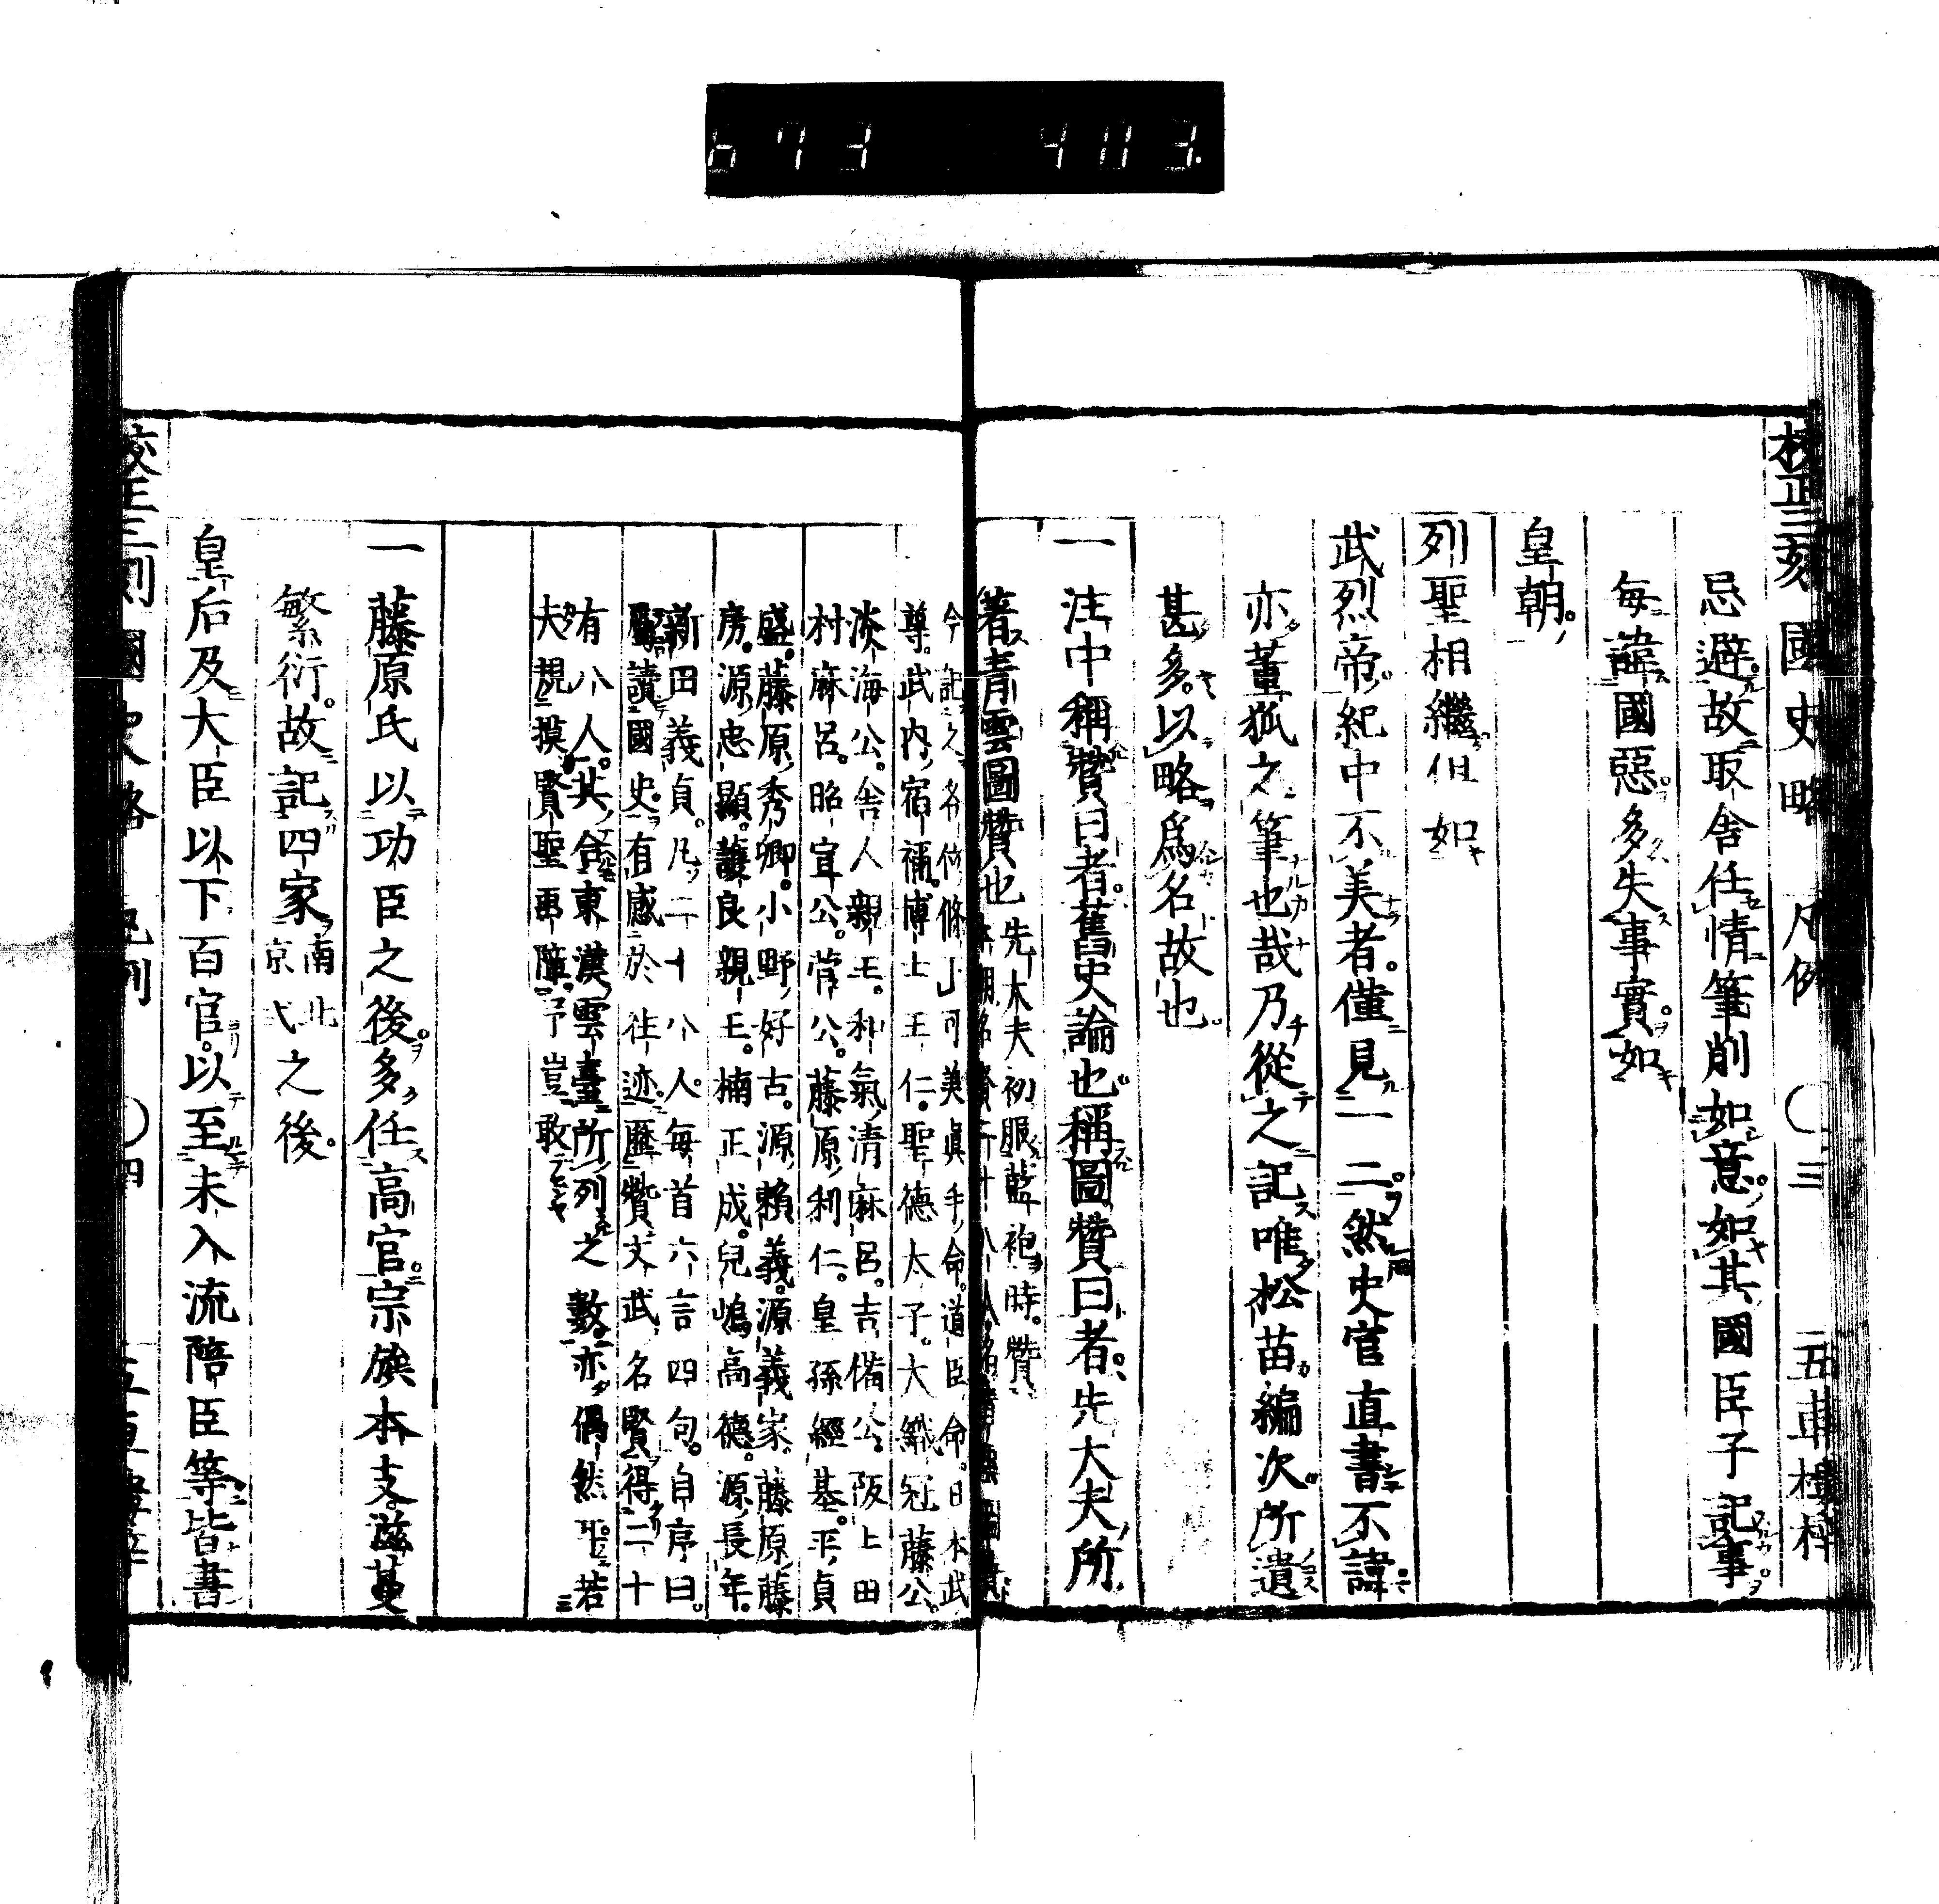 673 403.
校正三刻國史略 凡例 〇三 五車樓梓
忌避。故取舍任情。筆削如意。如其國臣子記事
每諱國惡。多失事實。如
皇朝。
列聖相繼。但如
武烈帝。紀中不美者。僅見一二。然史官直書不諱。
亦董狐之筆也哉。乃從之記。唯松苗編次。所遺
甚多。以略爲名故也。
一 注中稱贊曰者。舊史論也。稱圖贊曰者。先大夫所
著靑雲圖贊也
先大夫初服藍袍時。贊
今記之。各位條下可美眞手命。道臣命。日本武
尊。武內宿禰。博士王仁。聖德太子。大織冠藤公。
淡海公。舍人親王。和氣淸麻呂。吉備公。阪上田
村麻呂。昭宣公。菅公。藤原利仁。皇孫經基。平貞
盛。藤原秀卿。小野好古。源賴義。源義家。藤原藤
房。源忠顯。護良親王。楠正成。兒嶋高德。源長年。
新田義貞。凡二十八人。每首六言四句。自序曰。
讀國史。有感於往迹。歷贊文武名賢。得二十
有八人。其合東漢雲臺所列之數。亦偶然耳。若
夫規摸賢聖畫障。予豈敢
一 藤原氏以功臣之後。多任高官。宗族本支。滋蔓
繁衍。故記四家南北京式之後。
皇后及大臣以下百官。以至未入流陪臣等。皆書
校正三刻國史略 凡例 〇四 五車樓梓